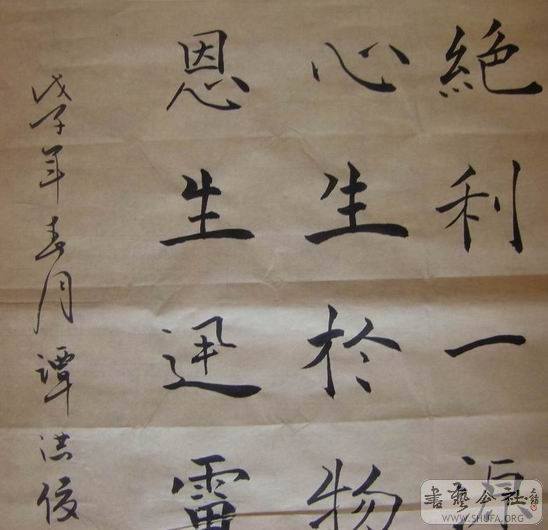 絕利一源
心生於物
恩生迅雷
戊子年春月譚洪俊
書藝公社
WWW.SHUFA.ORG